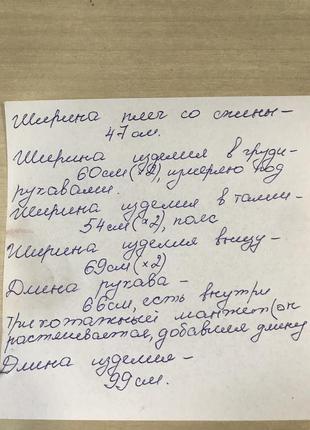 Ширина плеч со спины-
47см.
Ширина изделия в груди-
60см(×2), измеряю под
рукавами.
Ширина изделия в талии-
54см(×2), пояс
Ширина изделия внизу-
69см(×2)
Длина рукава-
66см, есть внутри
трикотажный манжет(он
растягивается, добавляя длину
Длина изделия-
99см.